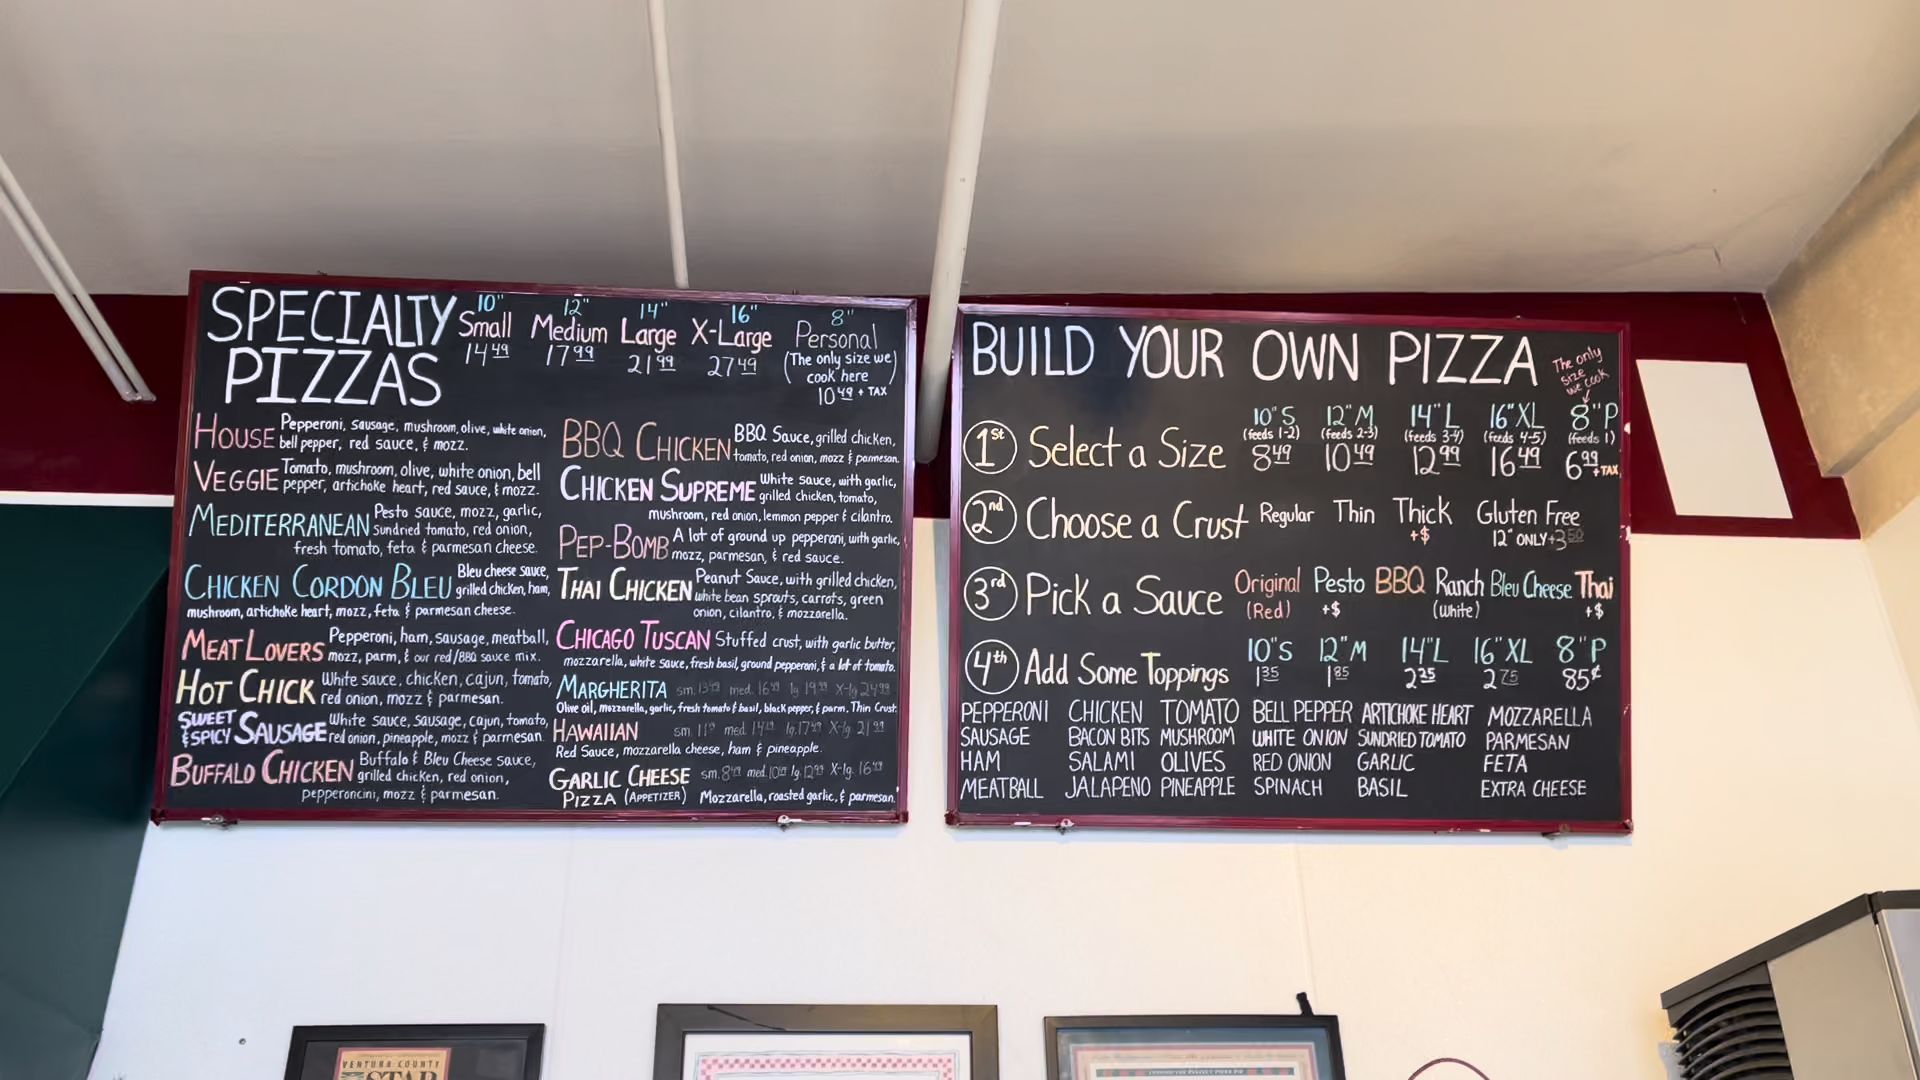 SPECIALTY PIZZAS
10" Small 14.49
12" Medium 17.99
14" Large 21.99
16" X-Large 27.49
8" Personal
(The only size we cook here)
10.49 + TAX
HOUSE Pepperoni, sausage, mushroom, olive, white onion,
bell pepper, red sauce, & mozz.
VEGGIE Tomato, mushroom, olive, white onion, bell
pepper, artichoke heart, red sauce, & mozz.
MEDITERRANEAN Pesto sauce, mozz, garlic,
Sundried tomato, red onion,
fresh tomato, feta & parmesan cheese.
CHICKEN CORDON BLEU Bleu cheese sauce,
grilled chicken, ham,
mushroom, artichoke heart, mozz, feta & parmesan cheese.
MEAT LOVERS Pepperoni, ham, sausage, meatball,
mozz, parm, & our red/BBQ sauce mix.
HOT CHICK White sauce, chicken, cajun, tomato,
red onion, mozz & parmesan.
SWEET & SPICY SAUSAGE White sauce, sausage, cajun, tomato,
red onion, pineapple, mozz & parmesan.
BUFFALO CHICKEN Buffalo & Bleu Cheese sauce,
grilled chicken, red onion,
pepperoncini, mozz & parmesan.
BBQ CHICKEN BBQ Sauce, grilled chicken,
tomato, red onion, mozz & parmesan.
CHICKEN SUPREME White sauce, with garlic,
grilled chicken, tomato,
mushroom, red onion, lemmon pepper & cilantro.
PEP-BOMB A lot of ground up pepperoni, with garlic,
mozz, parmesan, & red sauce.
THAI CHICKEN Peanut Sauce, with grilled chicken,
white bean sprouts, carrots, green
onion, cilantro, & mozzarella.
CHICAGO TUSCAN Stuffed crust, with garlic butter,
mozzarella, white sauce, fresh basil, ground pepperoni, & a lot of tomato.
MARGHERITA sm. 13.49 med. 16.49 lg 19.99 X-lg 24.99
Olive oil, mozzarella, garlic, fresh tomato & basil, black pepper, & parm. Thin Crust.
HAWAIIAN sm. med. 14.49 lg. 17.49 X-lg 21.99
Red Sauce, mozzarella cheese, ham & pineapple.
GARLIC CHEESE sm. 8.49 med. 10.49 lg. 12.99 X-lg. 16.49
PIZZA (APPETIZER) Mozzarella, roasted garlic, & parmesan.
BUILD YOUR OWN PIZZA
The only size we cook
1st Select a Size
10" S (feeds 1-2) 8.49
12" M (feeds 2-3) 10.49
14" L (feeds 3-4) 12.99
16" XL (feeds 4-5) 16.49
8" P (feeds 1) 6.99 + TAX
2nd Choose a Crust Regular Thin Thick +$ Gluten Free
12" ONLY +3.50
3rd Pick a Sauce Original (Red) Pesto +$ BBQ Ranch (White) Bleu Cheese Thai +$
4th Add Some Toppings
10" S 1.35
12" M 1.85
14" L 2.25
16" XL 2.75
8" P 85¢
PEPPERONI CHICKEN TOMATO BELL PEPPER ARTICHOKE HEART MOZZARELLA
SAUSAGE BACON BITS MUSHROOM WHITE ONION SUNDRIED TOMATO PARMESAN
HAM SALAMI OLIVES RED ONION GARLIC FETA
MEATBALL JALAPENO PINEAPPLE SPINACH BASIL EXTRA CHEESE
VENTURA COUNTY
STAR